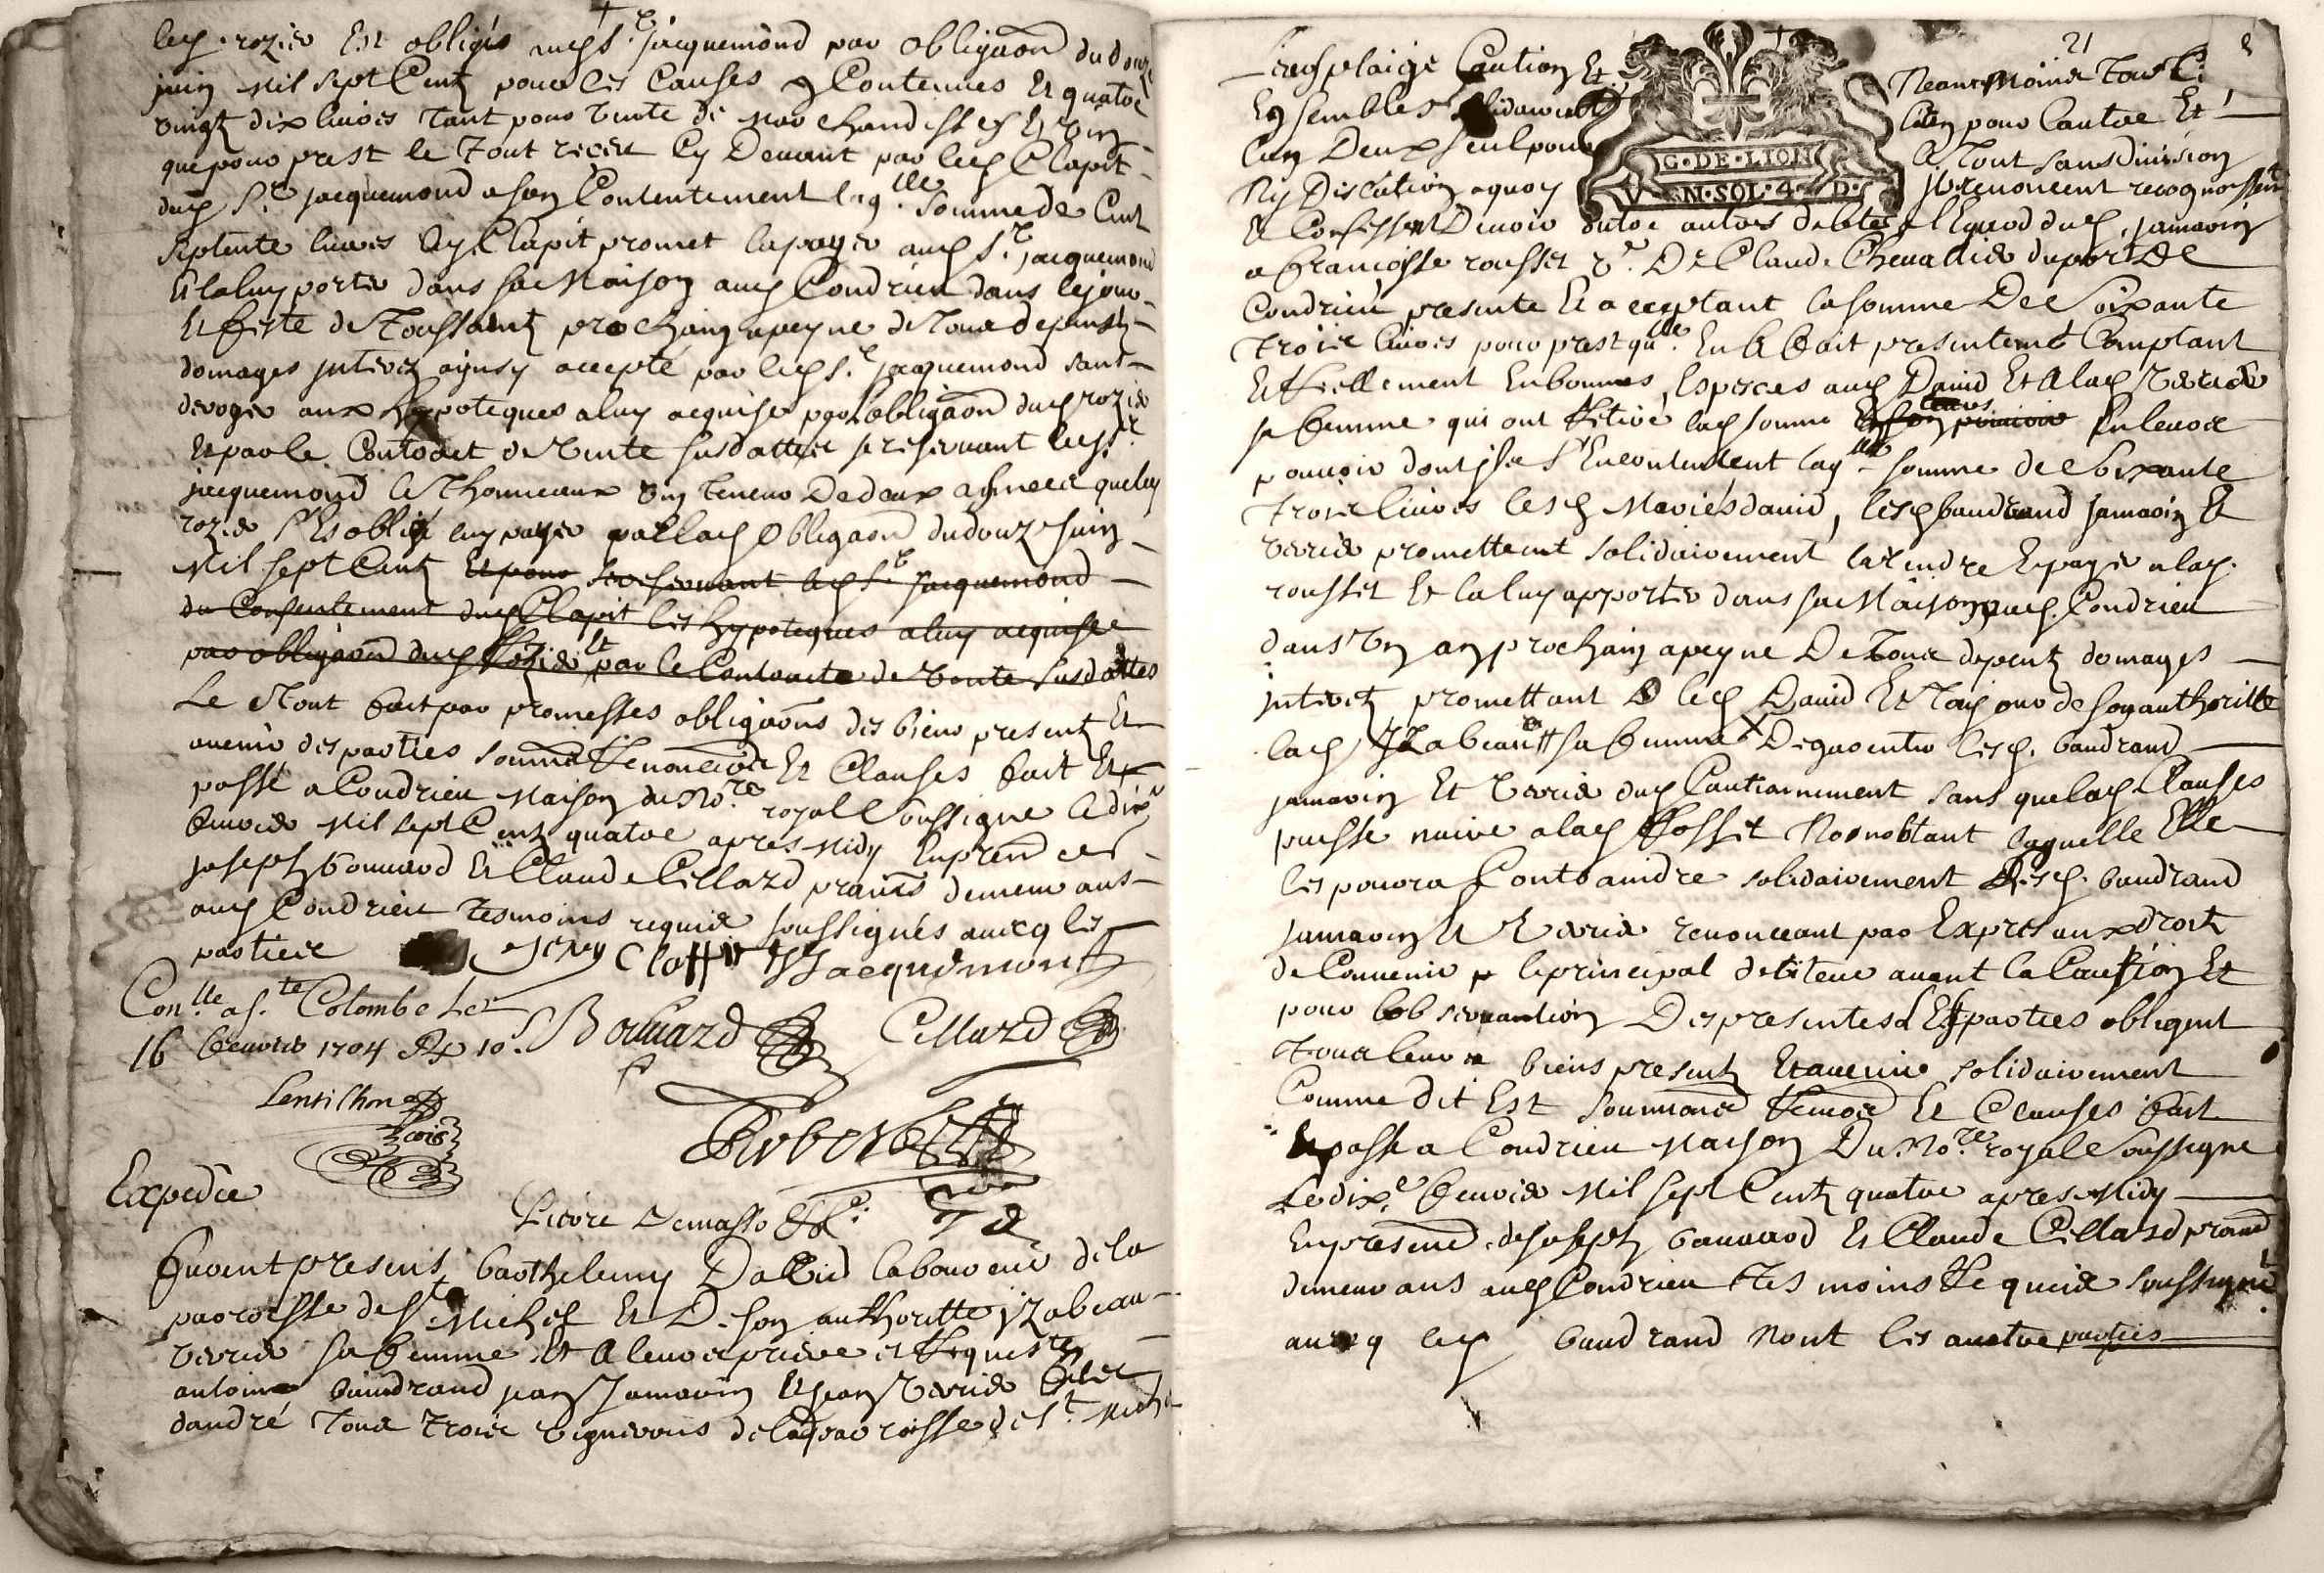 led. rozier Est obligé aud. Sr. jacquemond par obligaon du douze
juin Mil sept Centz pour les Causes y Contenues Et quatre
vingt dix livres Tant pour vente de marchandisses Et vin
que pour prest le Tout reçeu Cy Devant par led. Clapit
dud. Sr. jacquemond a son Contentement laq.lle somme de Cent
septente livres led. Clapit promet la payer aud. Sr. jacquemond
Et la luy porter dans sa Maison aud. Condrieu dans le jour
Et feste de Toussaintz prochain a peyne de Tous depans
domages jnterez aynsy accepté par led. Sr. jacquemond sans
deroger aux hypoteques a luy acquise par l'obligaon dud. rozier
Et par le Contract de Vente susdattée se reservant led. Sr.
jacquemond le Thonneaux Vin Teneur De deux asnées que led.
rozier s'Est obligé luy payer par lad. Obligaon du douze juin
Mil sept Centz Et pour se reservant led. Sr. jacquemond
du Consentement dud. Clapit les hypoteques a luy acquise
par obligaon dud. Rozier Et par le Contracte de Vente susdattes
Le Tout fait par promesses obligaons des biens present Et
avenir des parties soumis Renoncion Et Clauses fait Et
passé a Condrieu Maison du No.re royal soussigne le dix.e
fevrier Mil sept Centz quatre apres Midy En presence de
joseph bonnard Et Claude Cillard praticns demeurans
aud. Condrieu Tesmoins requis soussignés avecq les
parties
Clapit Jacquemont
Con.lle a S.te Colombe Le
16 fevrier 1704 Rx 10 s.
Bonnard Cillard
Lentilhon
Expedié
Furent presens barthelemy David laboureur de la
paroisse de St. Michel Et De son authoritte jzabeau
Verrier sa femme Et A leur priere et Requeste
antoine baudrand jean Jamarin Et jean Verrier filz
d'andré Tous Trois vignerons de lad. paroisse de St. Michel
21
Leurs plaige Caution Et Neantmoins Tous
Ensembles solidairement l'un pour l'autre Et
l'un Deux seul pour le Tout sans division
Ny Discution a quoy jls renoncent recognoissent
G·DE·LION
V M·SOL·4·D·
Et Confessent Devoir outre autres debtes a l'Egard dud. jamarin
a françoisse rousset v.e De Claude Chevallier du port De
Condrieu presente Et acceptant la somme De Soixante
Trois livres pour prest qu'elle En A fait presentement Comptant
Et Reellement En bonnes Especes aud. David Et A lad. Verrier
sa femme qui ont Retiré lad. somme En leurs
pouvoir dont jls s'En contentent laq.lle somme de soixante
Trois livres lesd. Mariés david, lesd. baudrand jamarin Et
verrier promettent solidairement la rendre Et payer a lad.
rousset Et la luy apporter dans sa Maison aud. Condrieu
dans Un an prochain a peyne De Tous depentz domages
jnterez promettant led. David Et Toujour de son authoritte
lad. Jzabeau sa femme De garentir lesd. baudrand
jamarin Et Verrier dud. Cautionnement sans que lad. Clauses
puisse nuire a lad. Rosset Nonobstant laquelle Elle
les pourra Contraindre solidairement Lesd. baudrand
jamarin Et Verrier renonceant par Expres aux droit
de Convenir le principal debiteur avant la Caution Et
pour l'observantion Des presentes Les parties obligent
Tous leurs biens presentz Et avenir solidairement
Comme dit Est soumions Renon Et Clauses fait
Et passé a Condrieu Maison Du No.re royal soussigne
Le dix.e fevrier Mil sept Centz quatre apres Midy
En presence de joseph bonnard Et Claude Cillard prat.
demeurans aud. Condrieu Tesmoins Requis soussignés
avecq led. baudrand Nont les autre parties